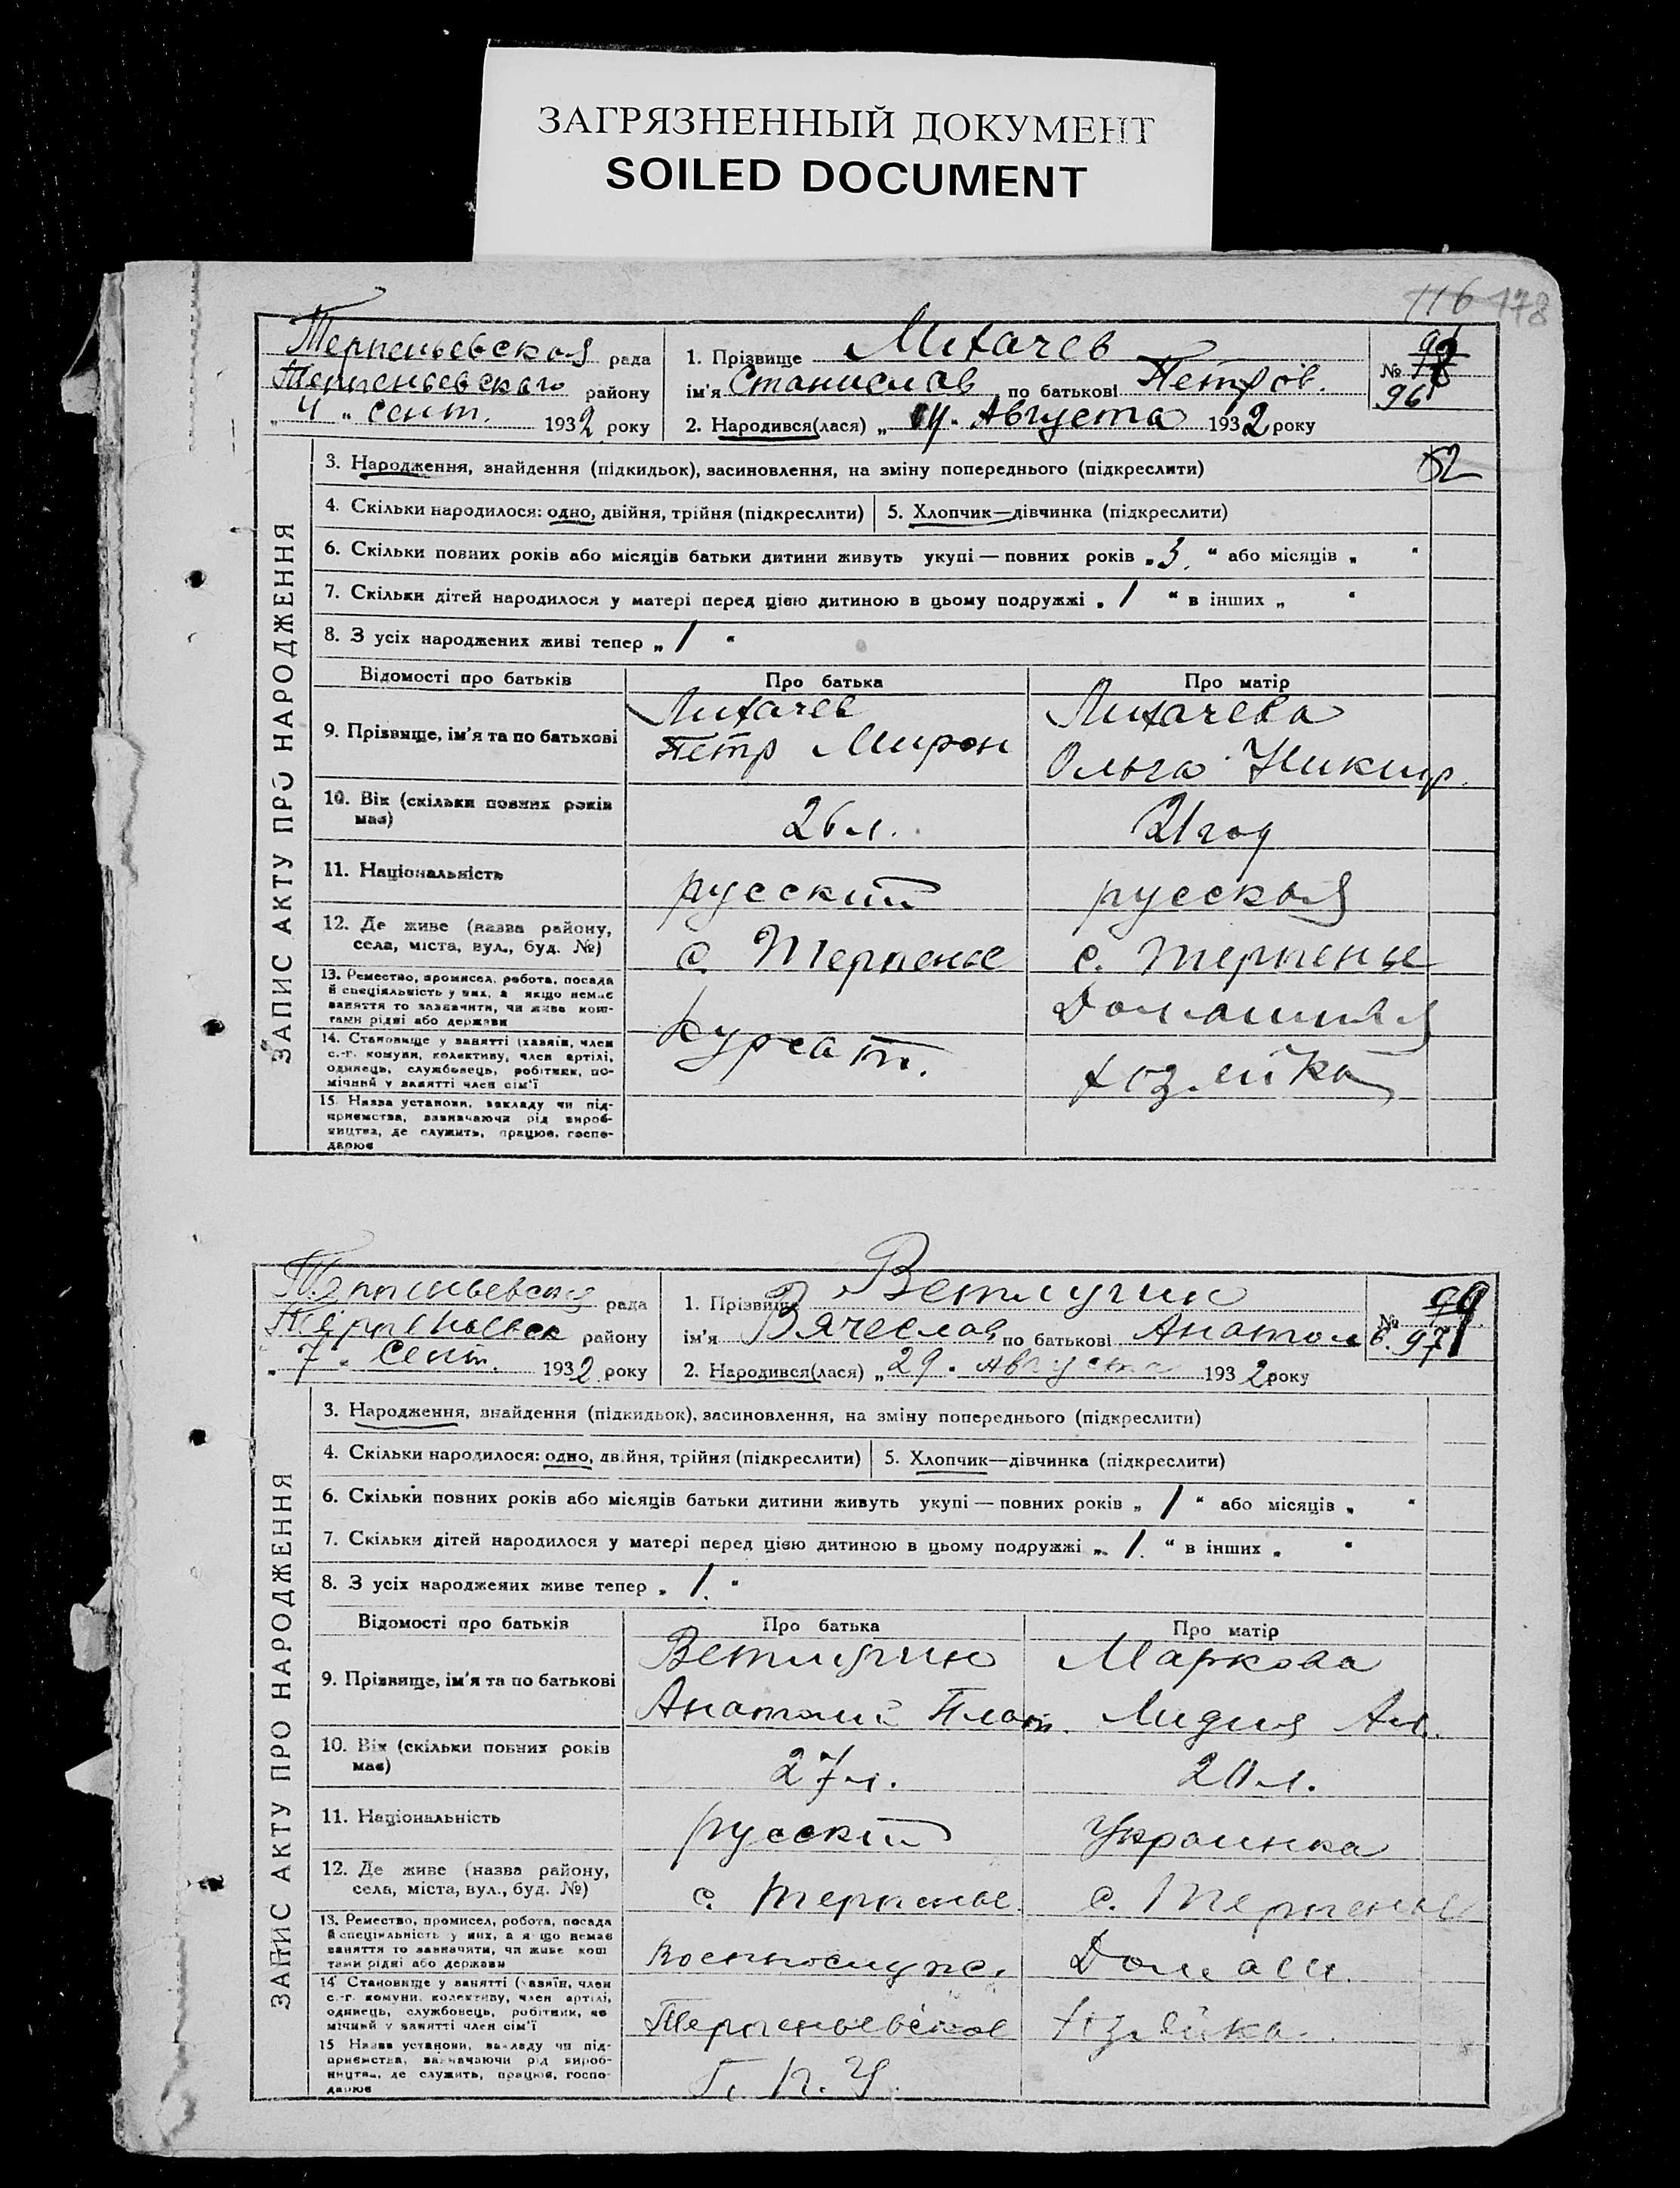 ЗАГРЯЗНЕННЫЙ ДОКУМЕНТ
SOILED DOCUMENT
116 178
Терпеньевская рада
Терпеньевского району
„4" сент. 1932 року
1. Прізвище Лихачев
ім'я Станислав по батькові Петров.
2. Народився(лася) Августа 1932 року
№
96
52
ЗАПИС АКТУ ПРО НАРОДЖЕННЯ
3. Народження, знайдення (підкидьок), засиновлення, на зміну попереднього (підкреслити)
4. Скільки народилося: одно, двійня, трійня (підкреслити) 5. Хлопчик—дівчинка (підкреслити)
6. Скільки повних років або місяців батьки дитини живуть укупі — повних років „3." або місяців „ "
7. Скільки дітей народилося у матері перед цією дитиною в цьому подружжі „1" в інших „ "
8. З усіх народжених живі тепер „1"
Відомості про батьків Про батька Про матір
9. Прізвище, ім'я та по батькові
Лихачев
Петр Мирон
Лихачева
Ольга Никиф.
10. Вік (скільки повних років має)
26 л. 21 год
11. Національність
русский русская
12. Де живе (назва району,
села, міста, вул., буд. №)
с. Терпенье с. Терпенье
13. Ремество, промисел, робота, посада
й спеціяльність у них, а якщо немає
заняття то зазначити, чи живе кош-
тами рідні або держави
14. Становище у занятті (хазяїн, член
с.-г. комуни, колективу, член артілі,
одинець, службовець, робітник, по-
мічний у занятті член сім'ї
15. Назва установи, закладу чи під-
приємства, зазначаючи рід вироб-
ництва, де служить, працює, госпо-
дарює
Курсант.
Домашняя
хозяйка
Терпеньевская рада
району
„7" Сент. 1932 року
1. Прізвище Ветлугин
ім'я Вячеслав по батькові Анатол
2. Народився(лася) „29" августа 1932 року
№ 99
97
ЗАПИС АКТУ ПРО НАРОДЖЕННЯ
3. Народження, знайдення (підкидьок), засиновлення, на зміну попереднього (підкреслити)
4. Скільки народилося: одно, двійня, трійня (підкреслити) 5. Хлопчик—дівчинка (підкреслити)
6. Скільки повних років або місяців батьки дитини живуть укупі — повних років „1" або місяців „ "
7. Скільки дітей народилося у матері перед цією дитиною в цьому подружжі „1." в інших „ "
8. З усіх народжених живе тепер „1."
Відомості про батьків Про батька Про матір
9. Прізвище, ім'я та по батькові
Ветлугин
Анатолий Плат.
Маркова
Лидия Ал.
10. Вік (скільки повних років має)
27 л. 20 л.
11. Національність
русский Украинка
12. Де живе (назва району,
села, міста, вул., буд. №)
с. Терпенье с. Терпенье
13. Ремество, промисел, робота, посада
й спеціяльність у них, а якщо немає
заняття то зазначити, чи живе кош
тами рідні або держави
14. Становище у занятті (хазяїн, член
с.-г. комуни, колективу, член артілі,
одинець, службовець, робітник, по
мічний у занятті член сім'ї
15 Назва установи, закладу чи під-
приємства, зазначаючи рід вироб-
ництва, де служить, працює, госпо-
дарює
Военнослуж.
Терпеньевское
Г. П. У.
Домаш.
хозяйка.